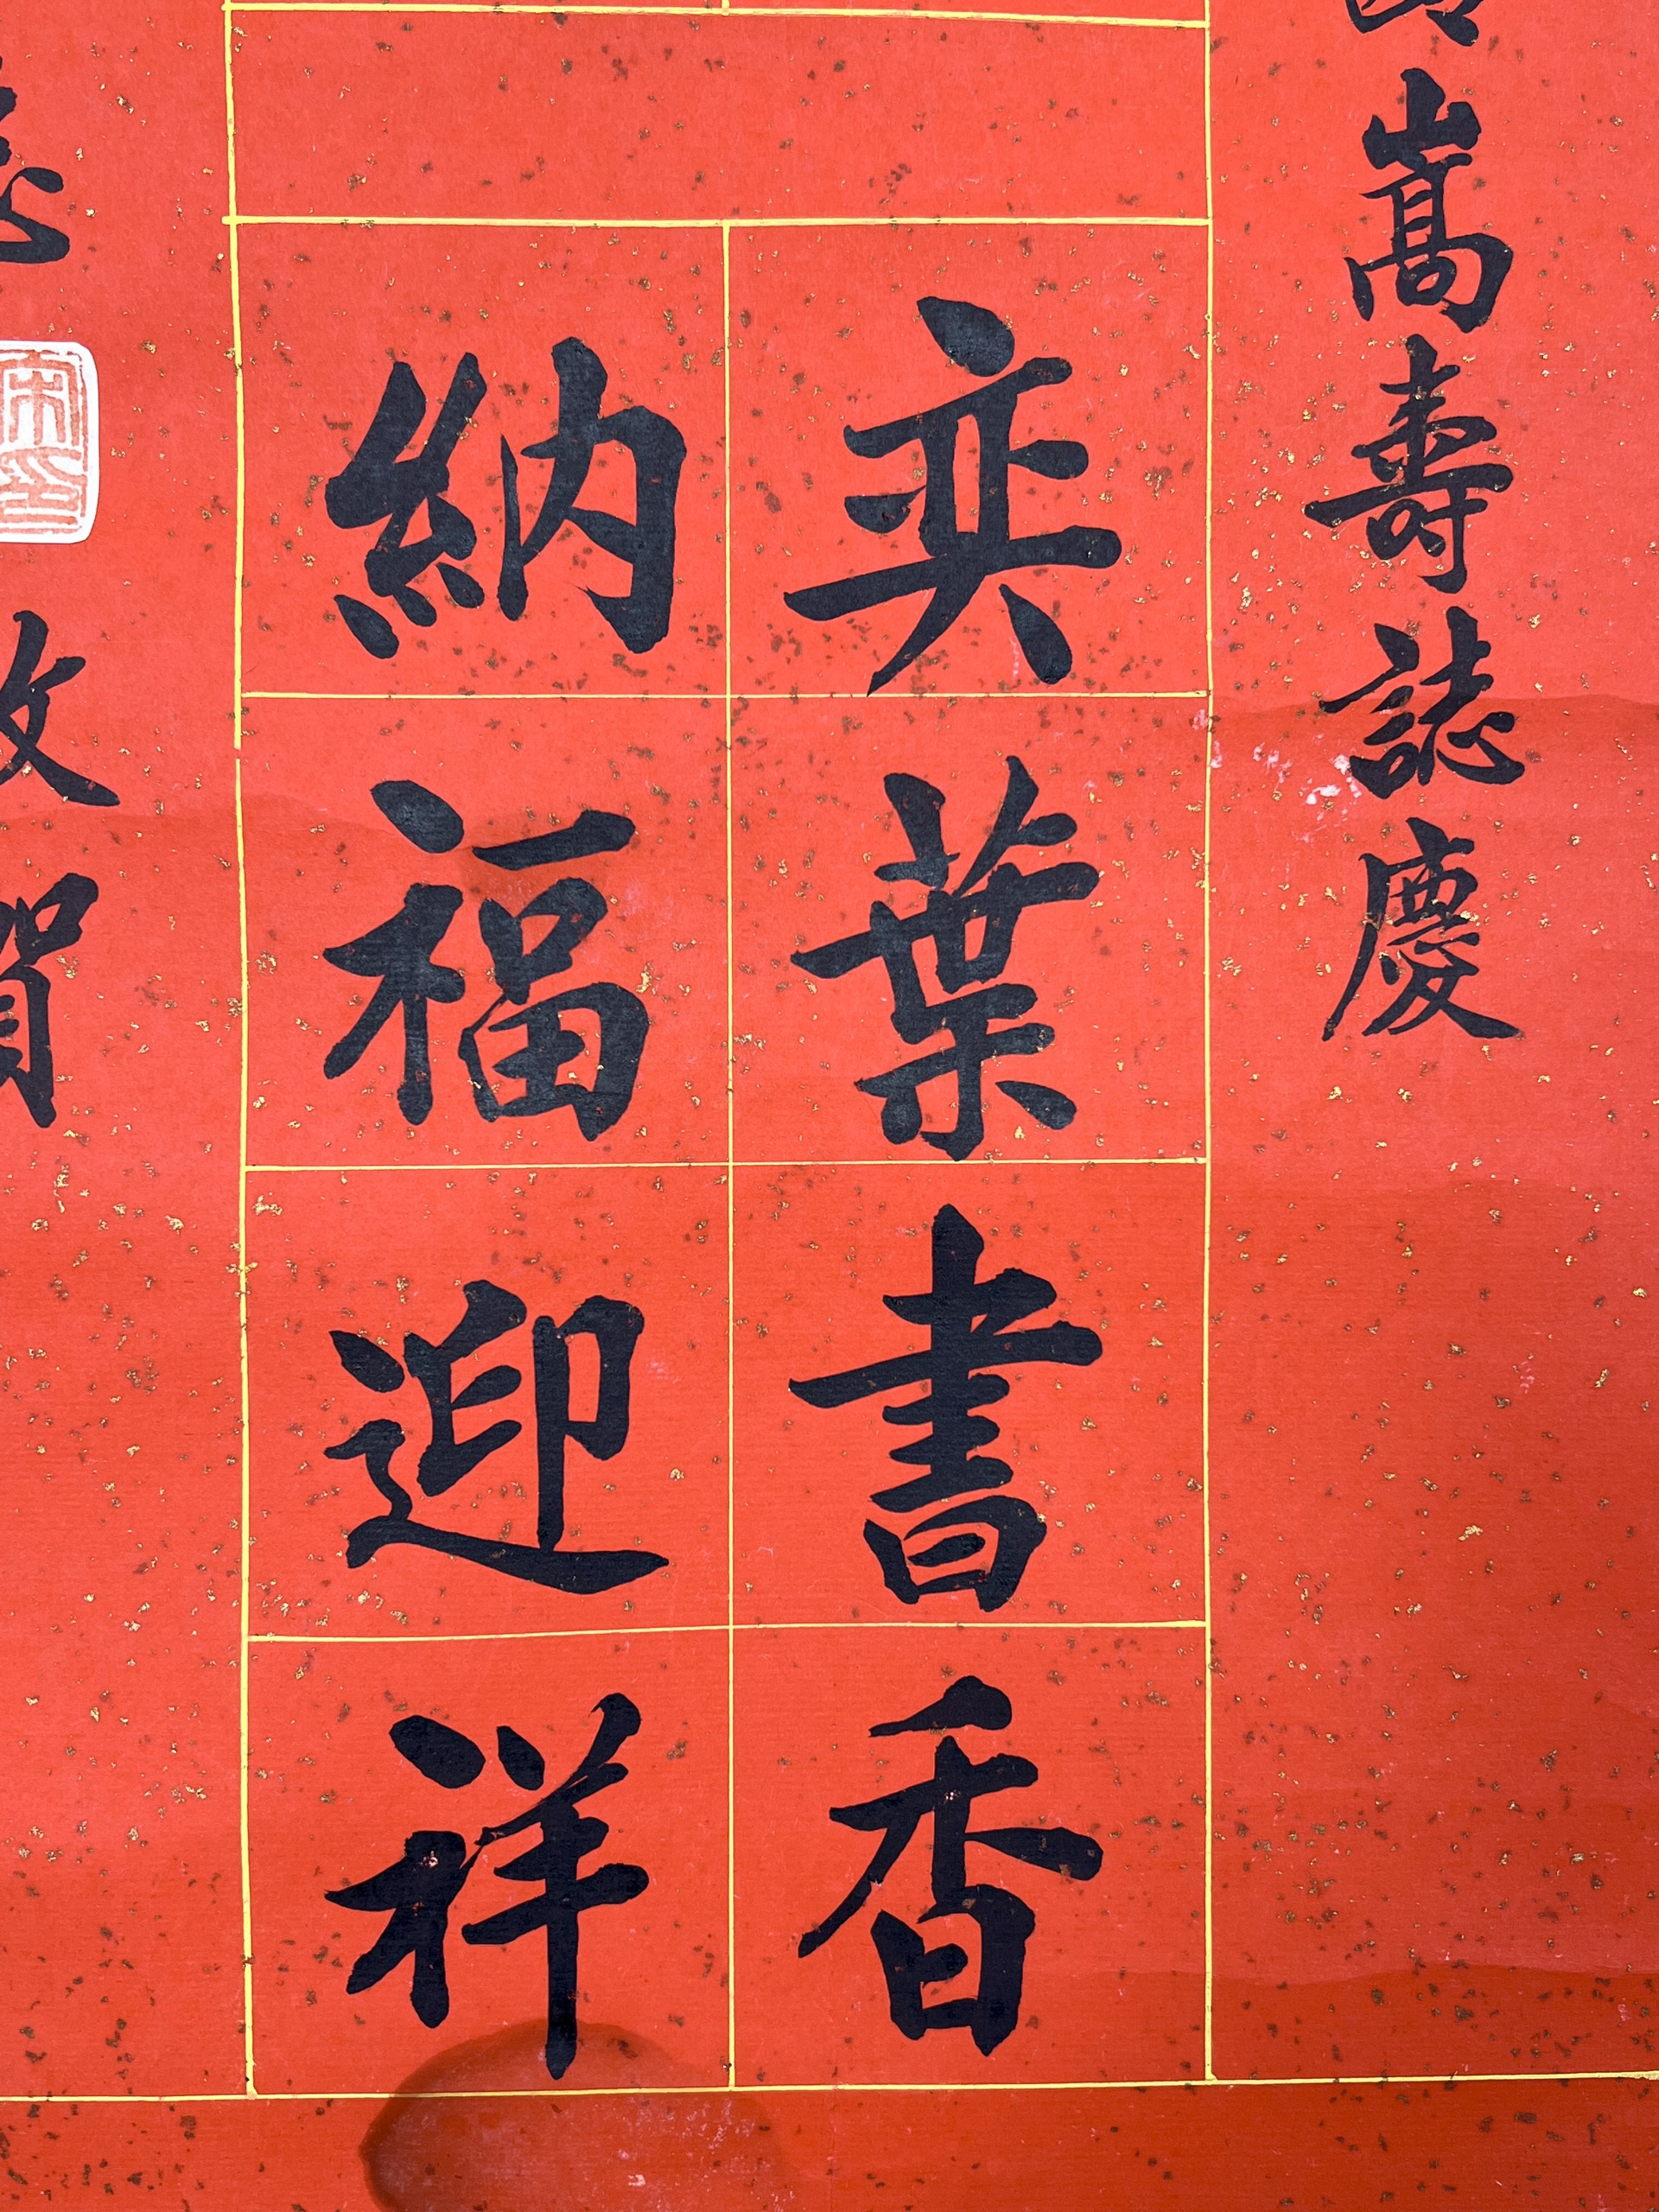 嵩壽誌慶
奕葉書香
納福迎祥
敬賀